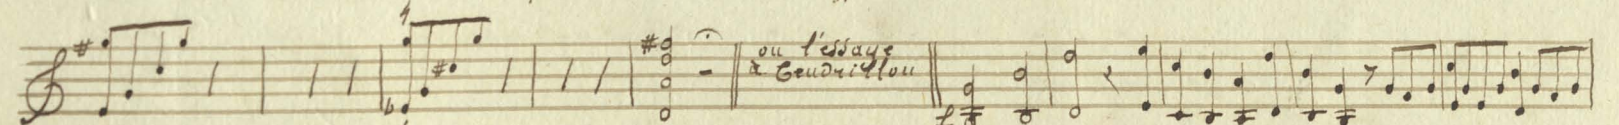 ou l'essaye
à Cendrillon